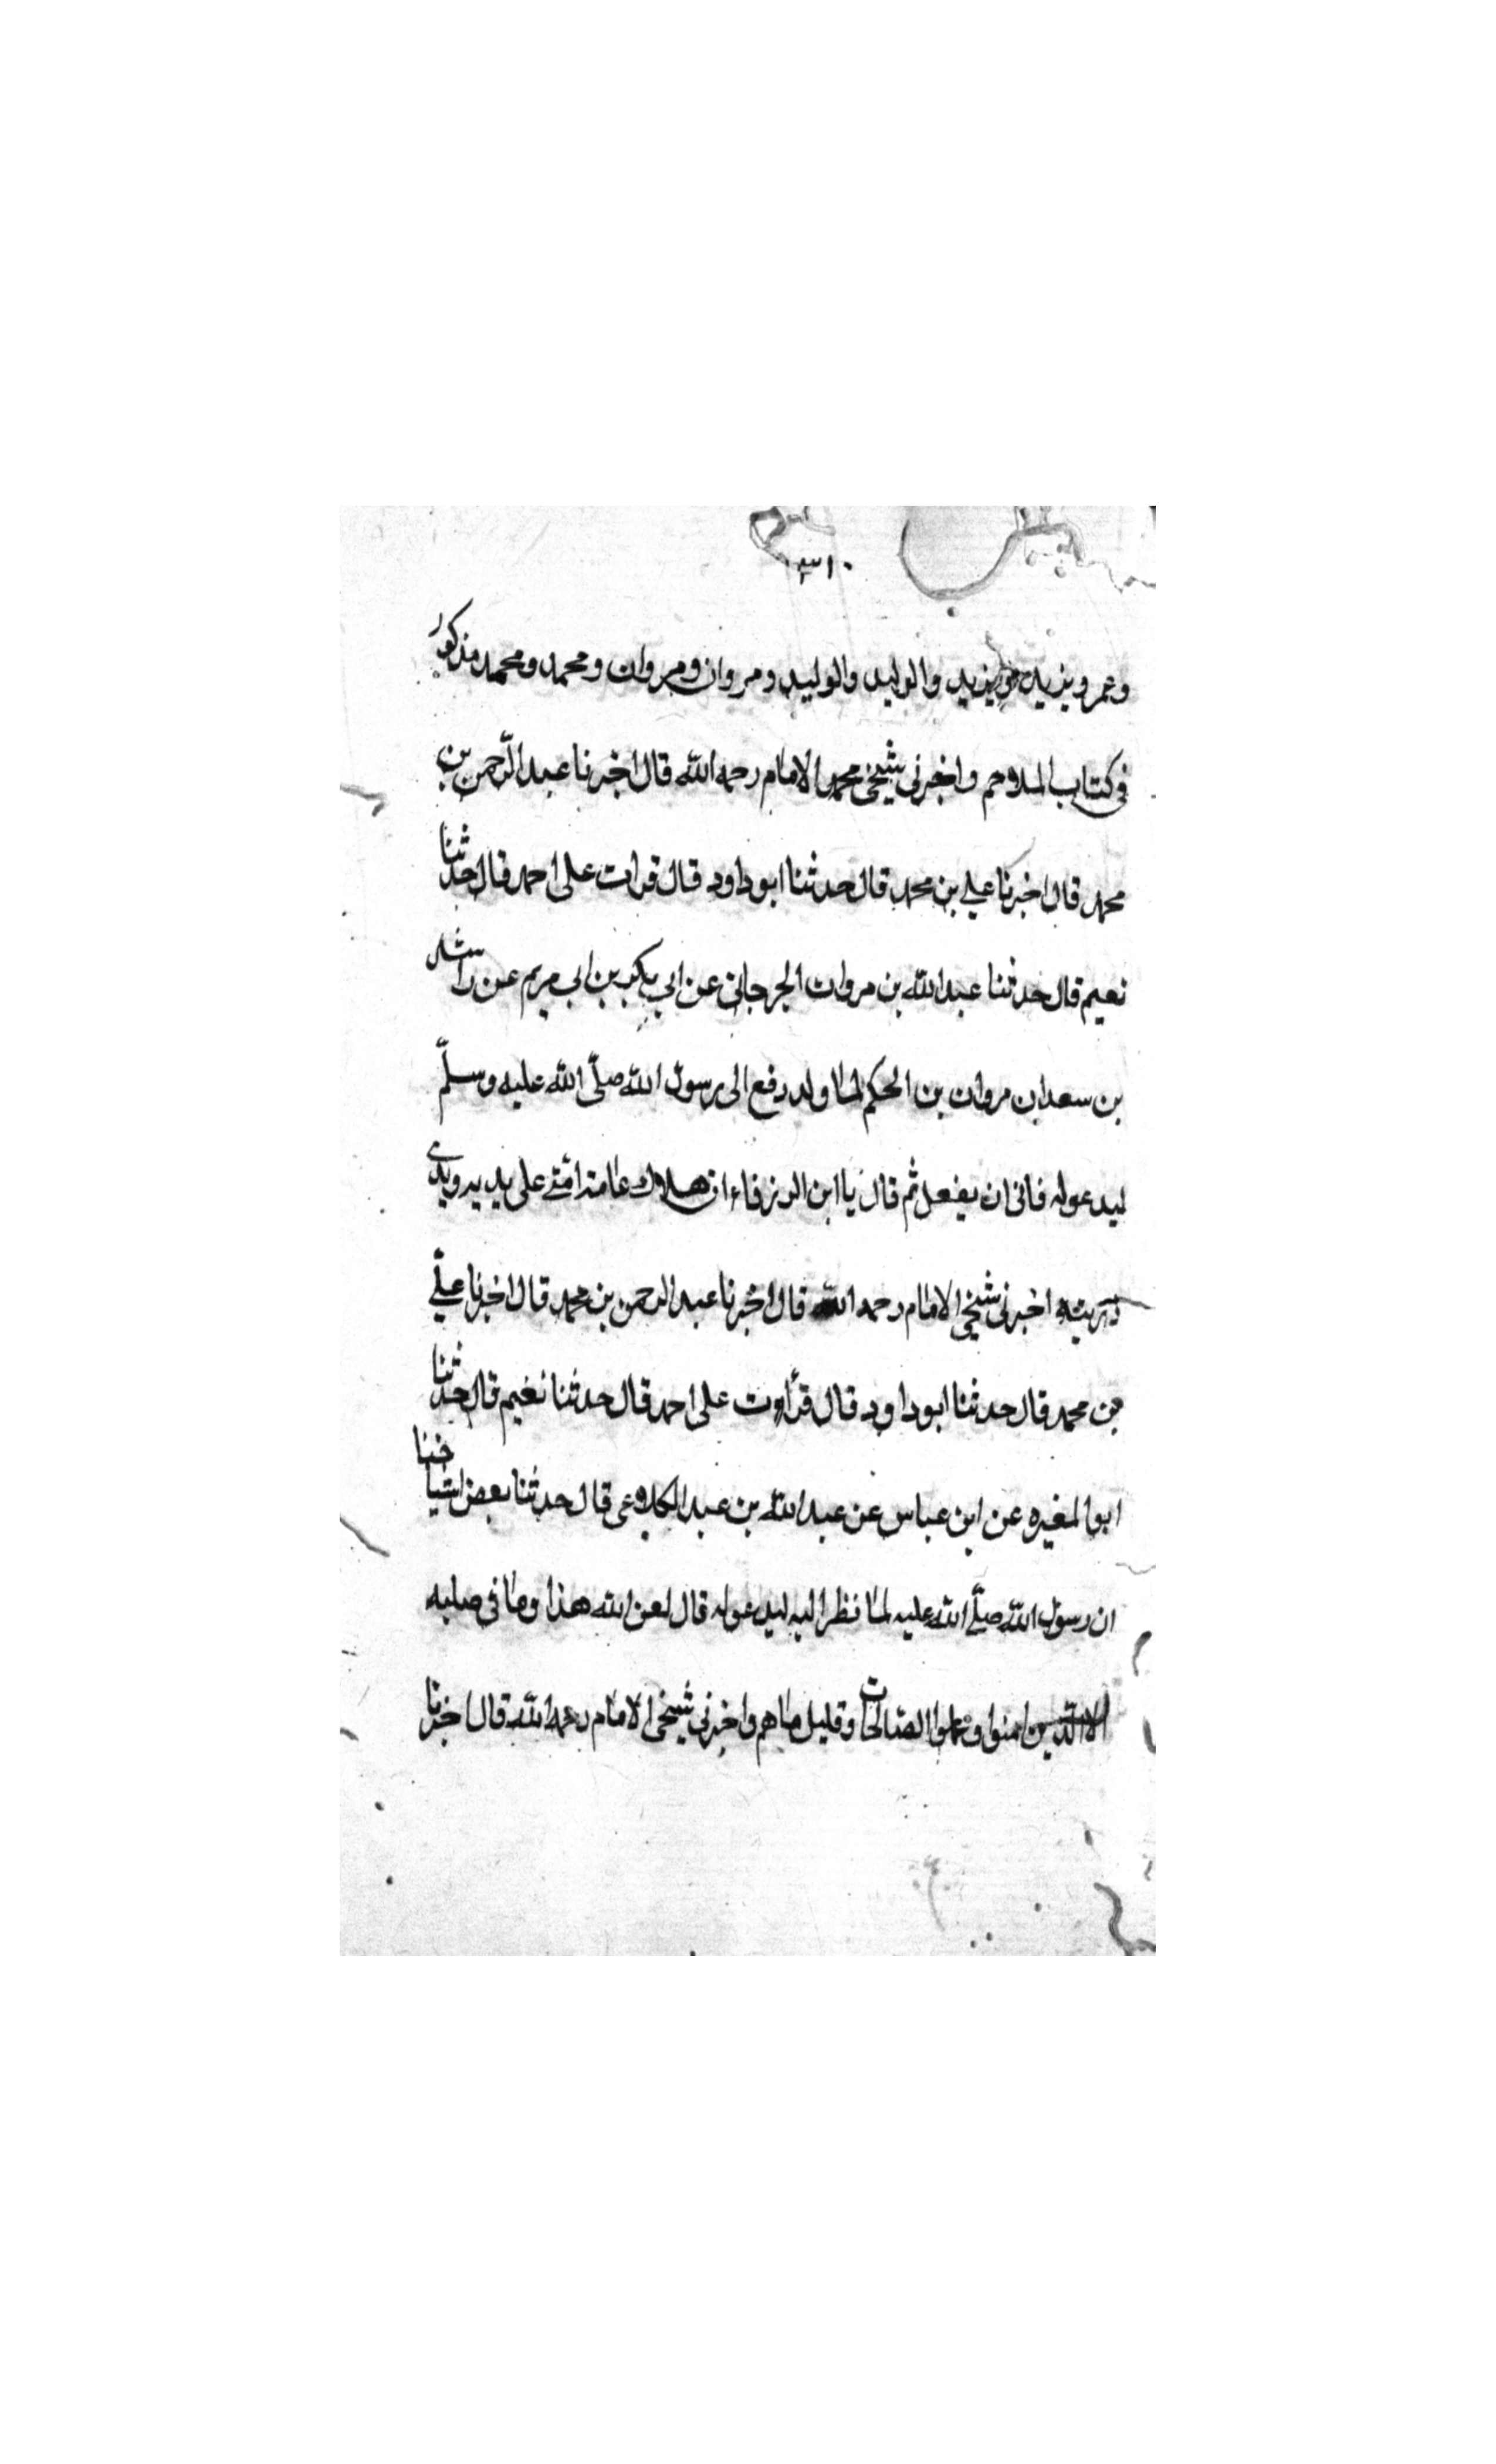 ٣١٠
وعمرو ويزيد ويزيد والوليد والوليد ومروان ومروان ومحمد ومحمد مذكور
فى كتاب الملاحم واخبرنى شيخى محمد الامام رحمه الله قال اخبرنا عبد الرحمن بن
محمد قال اخبرنا على بن محمد قال حدثنا ابو داود قال قرات على احمد قال حدثنا
نعيم قال حدثنا عبد الله بن مروان الجرجانى عن ابى بكر بن ابى مريم عن راشد
بن سعد ان مروان بن الحكم لما ولد رفع الى رسول الله صلّى الله عليه وسلّم
ليدعوله فانى ان يفعل ثم قال يا ابن الزرقاء ان هلاك عامة امتى على يديه ويدى
ذريته اخبرنى شيخى الامام رحمه الله قال اخبرنا عبد الرحمن بن محمد قال اخبرنا علىّ
بن محمد قال حدثنا ابو داود قال قرأت على احمد قال حدثنا نعيم قال حدثنا
ابو المغيره عن ابن عباس عن عبد الله بن عبد الكلاعى قال حدثنا بعض اشياخنا
ان رسول الله صلّى الله عليه لما نظر اليه ليدعوله قال لعن الله هذا وما فى صلبه
الا الّذين امنوا وعملوا الصّالحات وقليل ما هم واخبرنى شيخى الامام رحمه الله قال اخبرنا